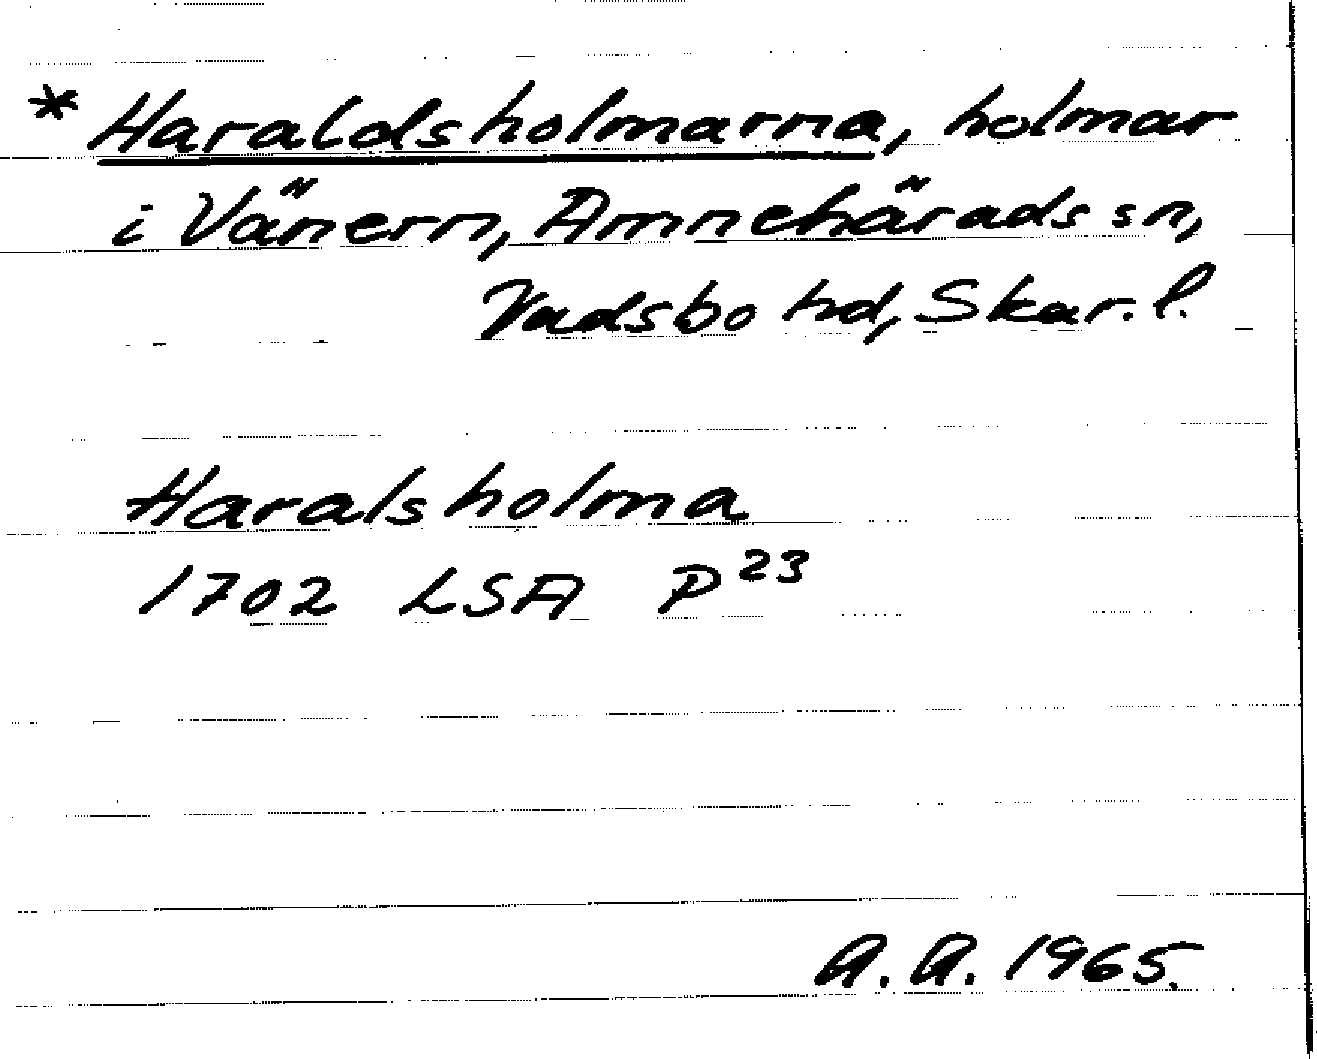 * Haraldsholmarna, holmar
i Vänern, Amnehärads sn,
Vadsbo hd, Skar. l.
Haralsholma
1702 LSA P23
A. A. 1965.